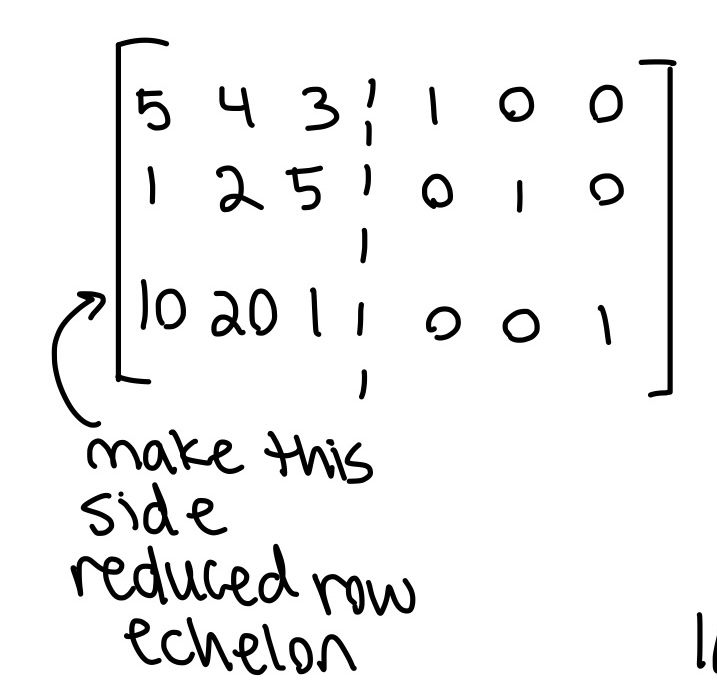 5 4 3 ¦ 1 0 0
1 2 5 ¦ 0 1 0
10 20 1 ¦ 0 0 1
make this
side
reduced row
echelon